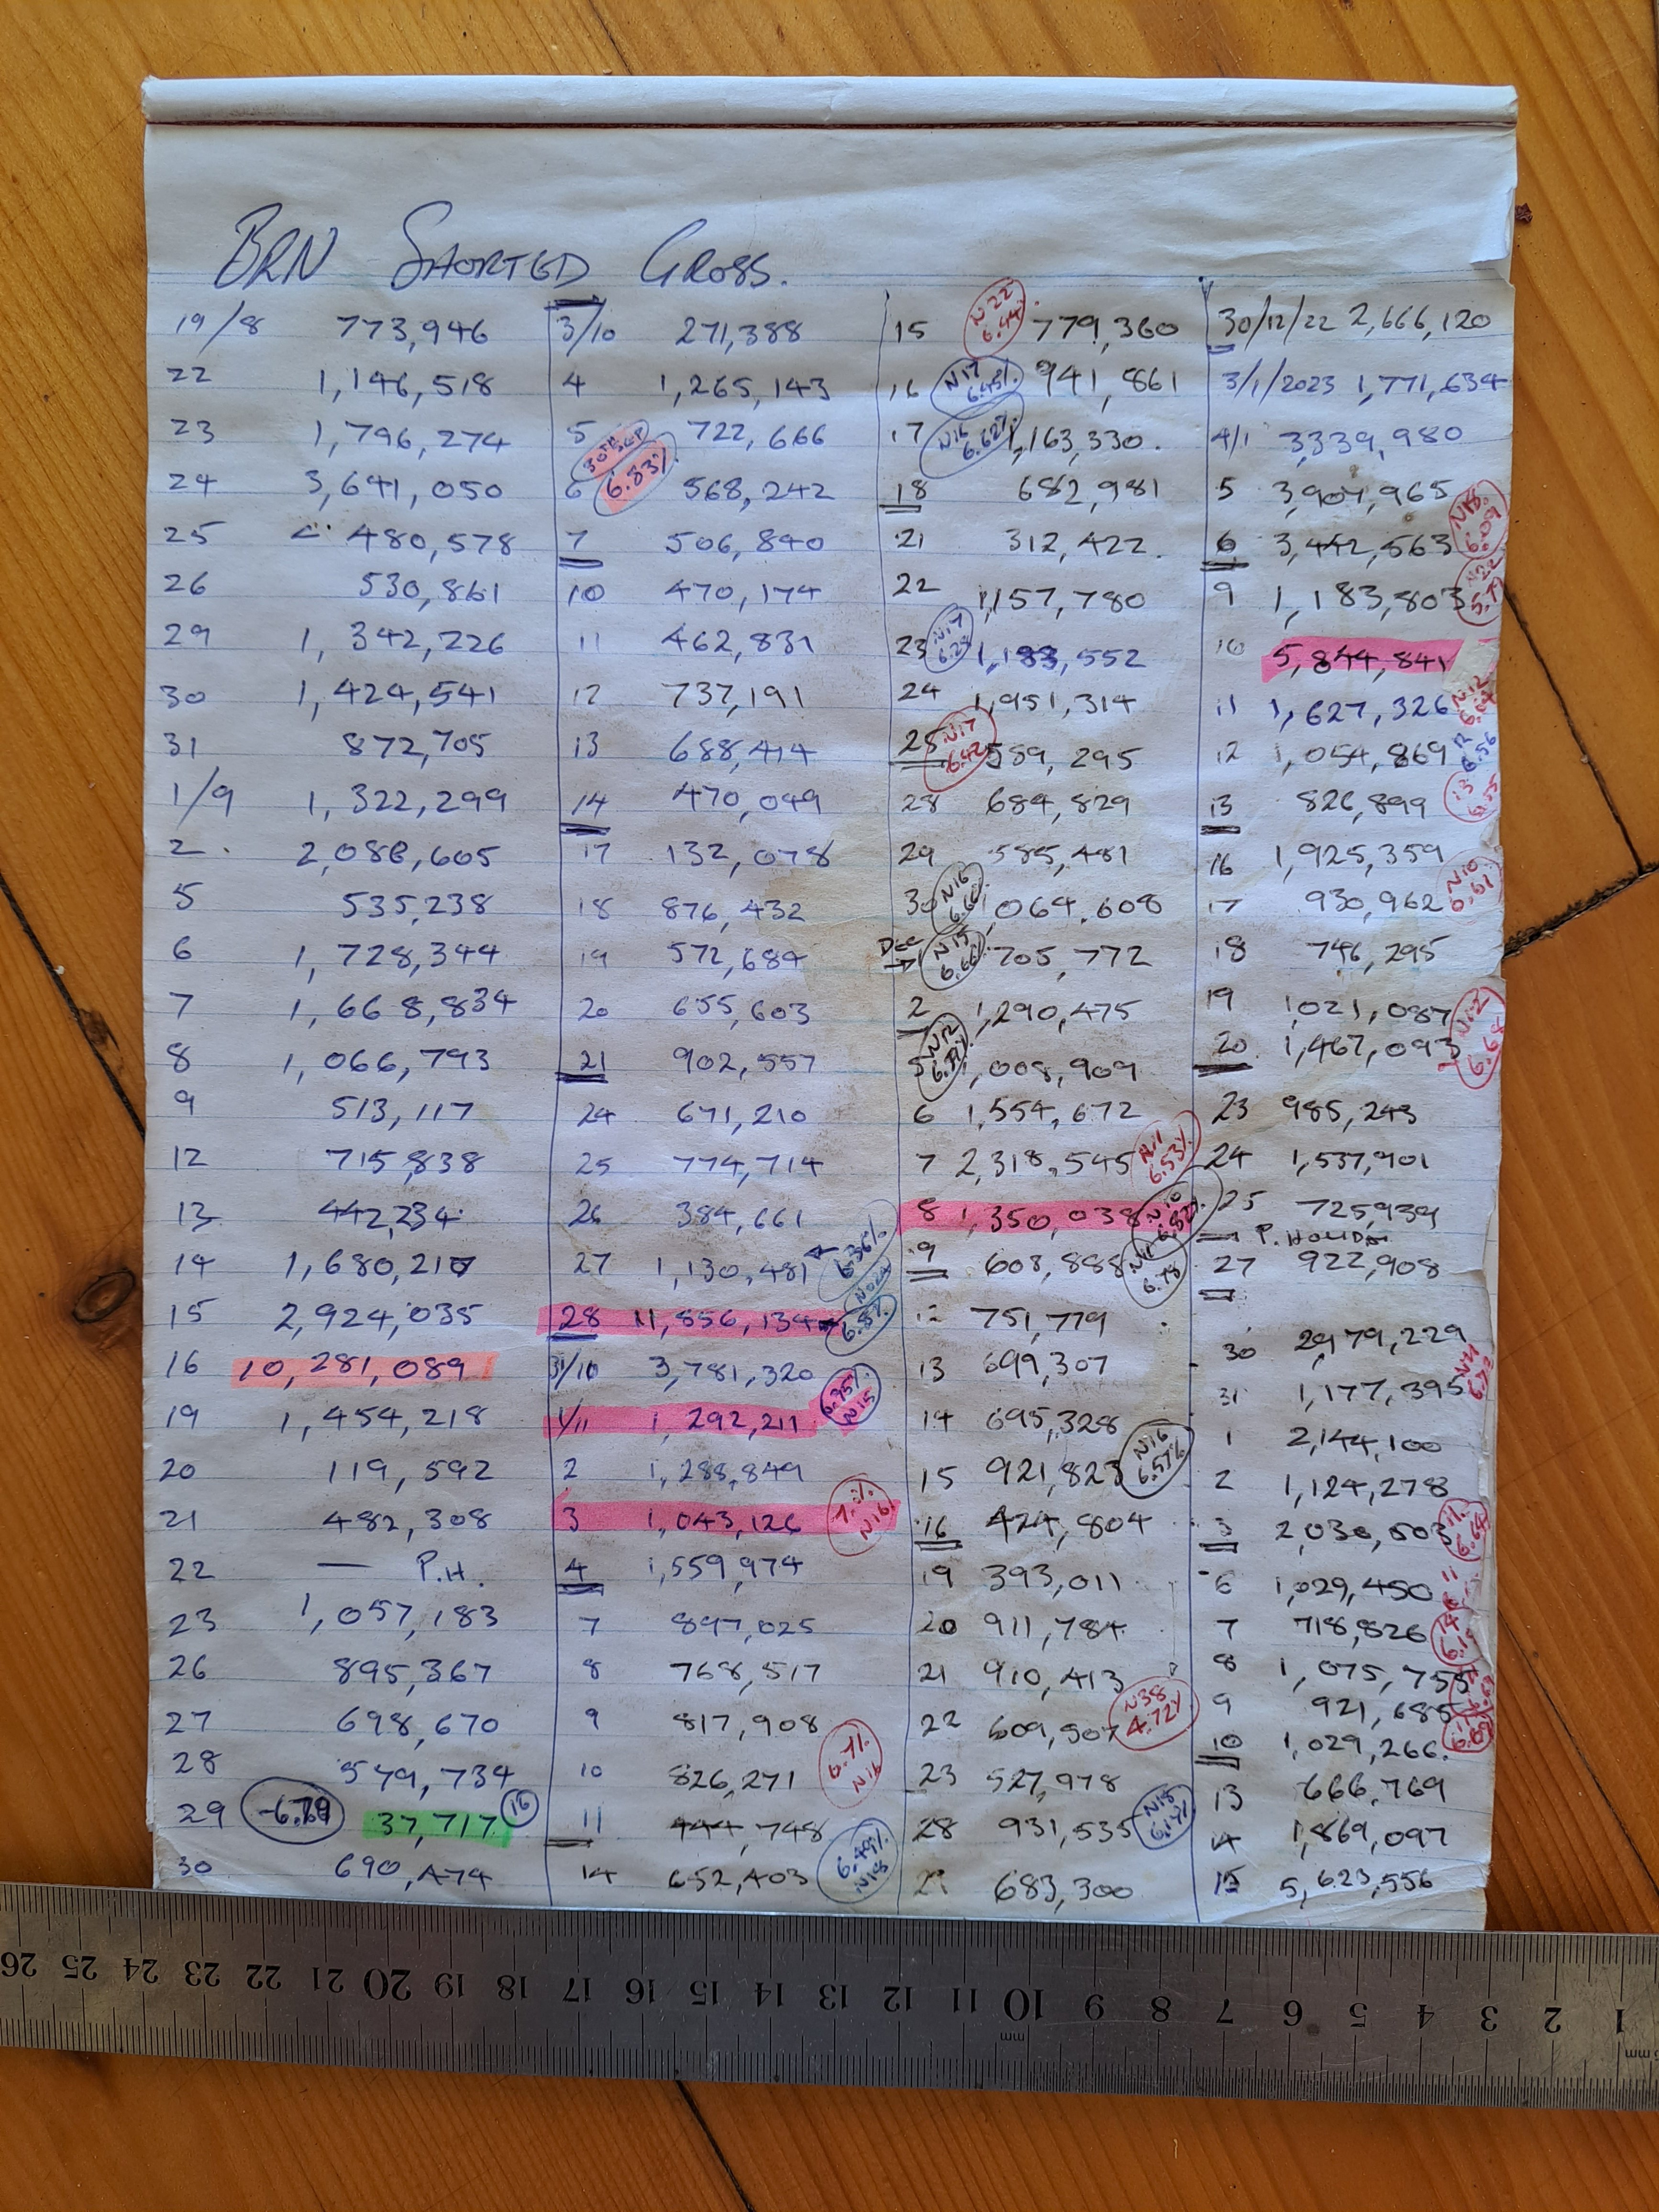 BRN SHORTED GROSS.
19/8 773,946
22 1,146,518
23 1,796,274
24 3,641,050
25 480,578
26 530,861
29 1,342,226
30 1,424,541
31 872,705
1/9 1,322,299
2. 2,088,605
5 535,238
6 1,728,344
7 1,668,834
8 1,066,793
9 513,117
12 715,838
13 442,234
14 1,680,217
15 2,924,035
16 10,281,089
19 1,454,218
20 119,592
21 482,308
22 — P.H.
23 1,057,183
26 895,367
27 698,670
28 579,734
29 37,717 16
30 690,474
3/10 271,388
4 1,265,143
5 722,666
30TH SEP
6.83%
6 568,242
7 506,840
10 470,174
11 462,831
12 737,191
13 688,414
14 470,049
17 132,078
18 876,432
19 572,684
20 655,603
21 902,557
24 671,210
25 774,714
26 384,661
27 1,130,481 6.36%
28 11,856,134
31/10 3,781,320
1/11 1,292,211 6.75% N15
2 1,288,849
3 1,043,126 N16
4 1,559,974
7 897,025
8 768,517
9 817,908
10 826,271 6.7% N16
11 444,748
14 652,403 6.49% N18
15 N22 6.44 779,360
16 N17 6.45% 941,861
17 N16 6.62% 1,163,330.
18 682,981
21 312,422.
22 1,157,780
23 N17 1,183,552
24 1,951,314
25 N17 6.42 589,295
28 684,829
29 585,481
30 N16 6.60 1,064,608
Dec 1 N15 6.66 705,772
2 1,290,475
5 N12 1,008,909
6 1,554,672
7 2,318,545 N11 6.53%
8 1,350,038 N10
9 608,888 N11 6.78
12 751,779
13 699,307
14 695,328
15 921,823 N16 6.57%
16 424,804
19 393,011
20 911,784
21 910,413
22 609,507 N38 4.72%
23 527,978
28 931,535 N18
29 683,300
30/12/22 2,666,120
3/1/2023 1,771,634
4/1 3,339,980
5 3,907,965
6 3,442,563 N18 6.09
9 1,183,803 N22
10 5,844,841
11 1,627,326 N12
12 1,054,869 6.56
13 826,899 13 6.55
16 1,925,359
17 930,962 N10
18 746,295
19 1,021,087
20 1,467,093 N12 6.68
23 985,243
24 1,537,901
25 725,939
P. HOLIDAY
27 922,908
30 2,979,229
31 1,177,395 N11
1 2,144,100
2 1,124,278
3 2,030,503
6 1,029,450
7 718,826
8 1,075,755
9 921,685
10 1,029,266.
13 666,769
14 1,869,097
15 5,623,556
26 25 24 23 22 21 20 19 18 17 16 15 14 13 12 11 10 9 8 7 6 5 4 3 2 1
mm
mm